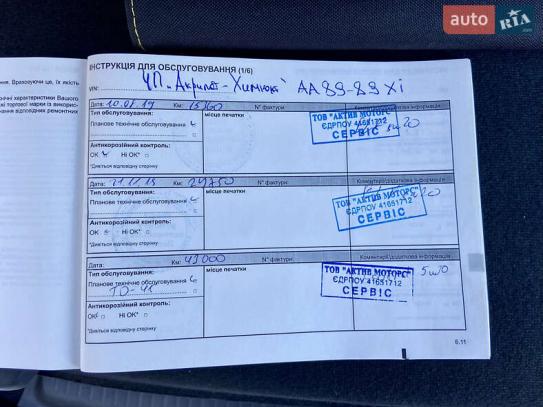 auto RIA
ння. Враховуючи це, їх якість
ічні характеристики Вашого
ні торгової марки із викорис-
нання відповідних ремонтних
ІНСТРУКЦІЯ ДЛЯ ОБСЛУГОВУВАННЯ (1/6)
VIN: АА 89-89 ХІ
Дата: 10.07.19 Км: 15800 N° фактури: Коментарі/додаткова інформація
Тип обслуговування: місце печатки
Планове технічне обслуговування
Антикорозійний контроль:
ОК Ні ОК*
*Дивіться відповідну сторінку
ТОВ "АКТИВ МОТОРС"
ЄДРПОУ 41651712
СЕРВІС
5w30
Дата: 21.11.19 Км: 29750 N° фактури: Коментарі/додаткова інформація
Тип обслуговування: місце печатки
Планове технічне обслуговування
Антикорозійний контроль:
ОК Ні ОК*
*Дивіться відповідну сторінку
ТОВ "АКТИВ МОТОРС"
ЄДРПОУ 41651712
СЕРВІС
Дата: Км: 43000 N° фактури: Коментарі/додаткова інформація
Тип обслуговування: місце печатки
Планове технічне обслуговування
ТО-
Антикорозійний контроль:
ОК Ні ОК*
*Дивіться відповідну сторінку
ТОВ "АКТИВ МОТОРС"
ЄДРПОУ 41651712
СЕРВІС
5w30
6.11